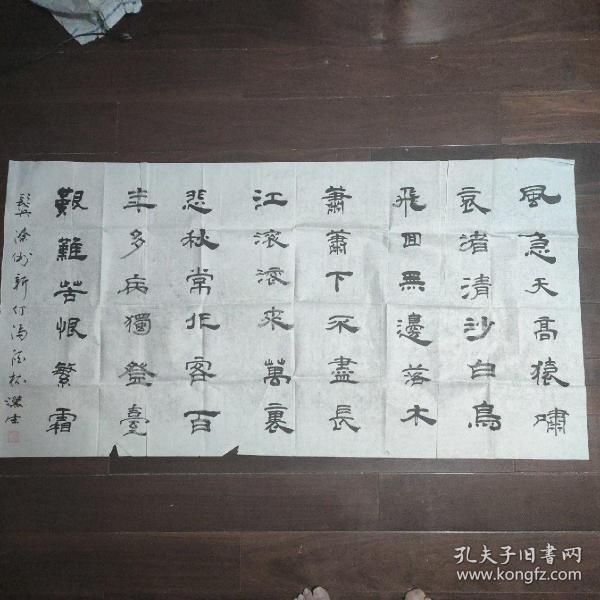 風急天高猿嘯
哀渚清沙白鳥
飛回無邊落木
蕭蕭下不盡長
江滾滾來萬裏
悲秋常作客百
年多病獨登臺
艱難苦恨繁霜
鬢
孔夫子旧书网
www.kongfz.com